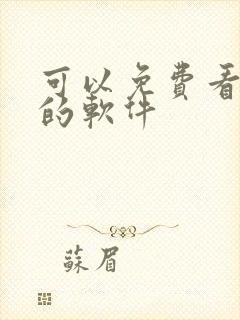 可以免費看
的軟件
蘇眉